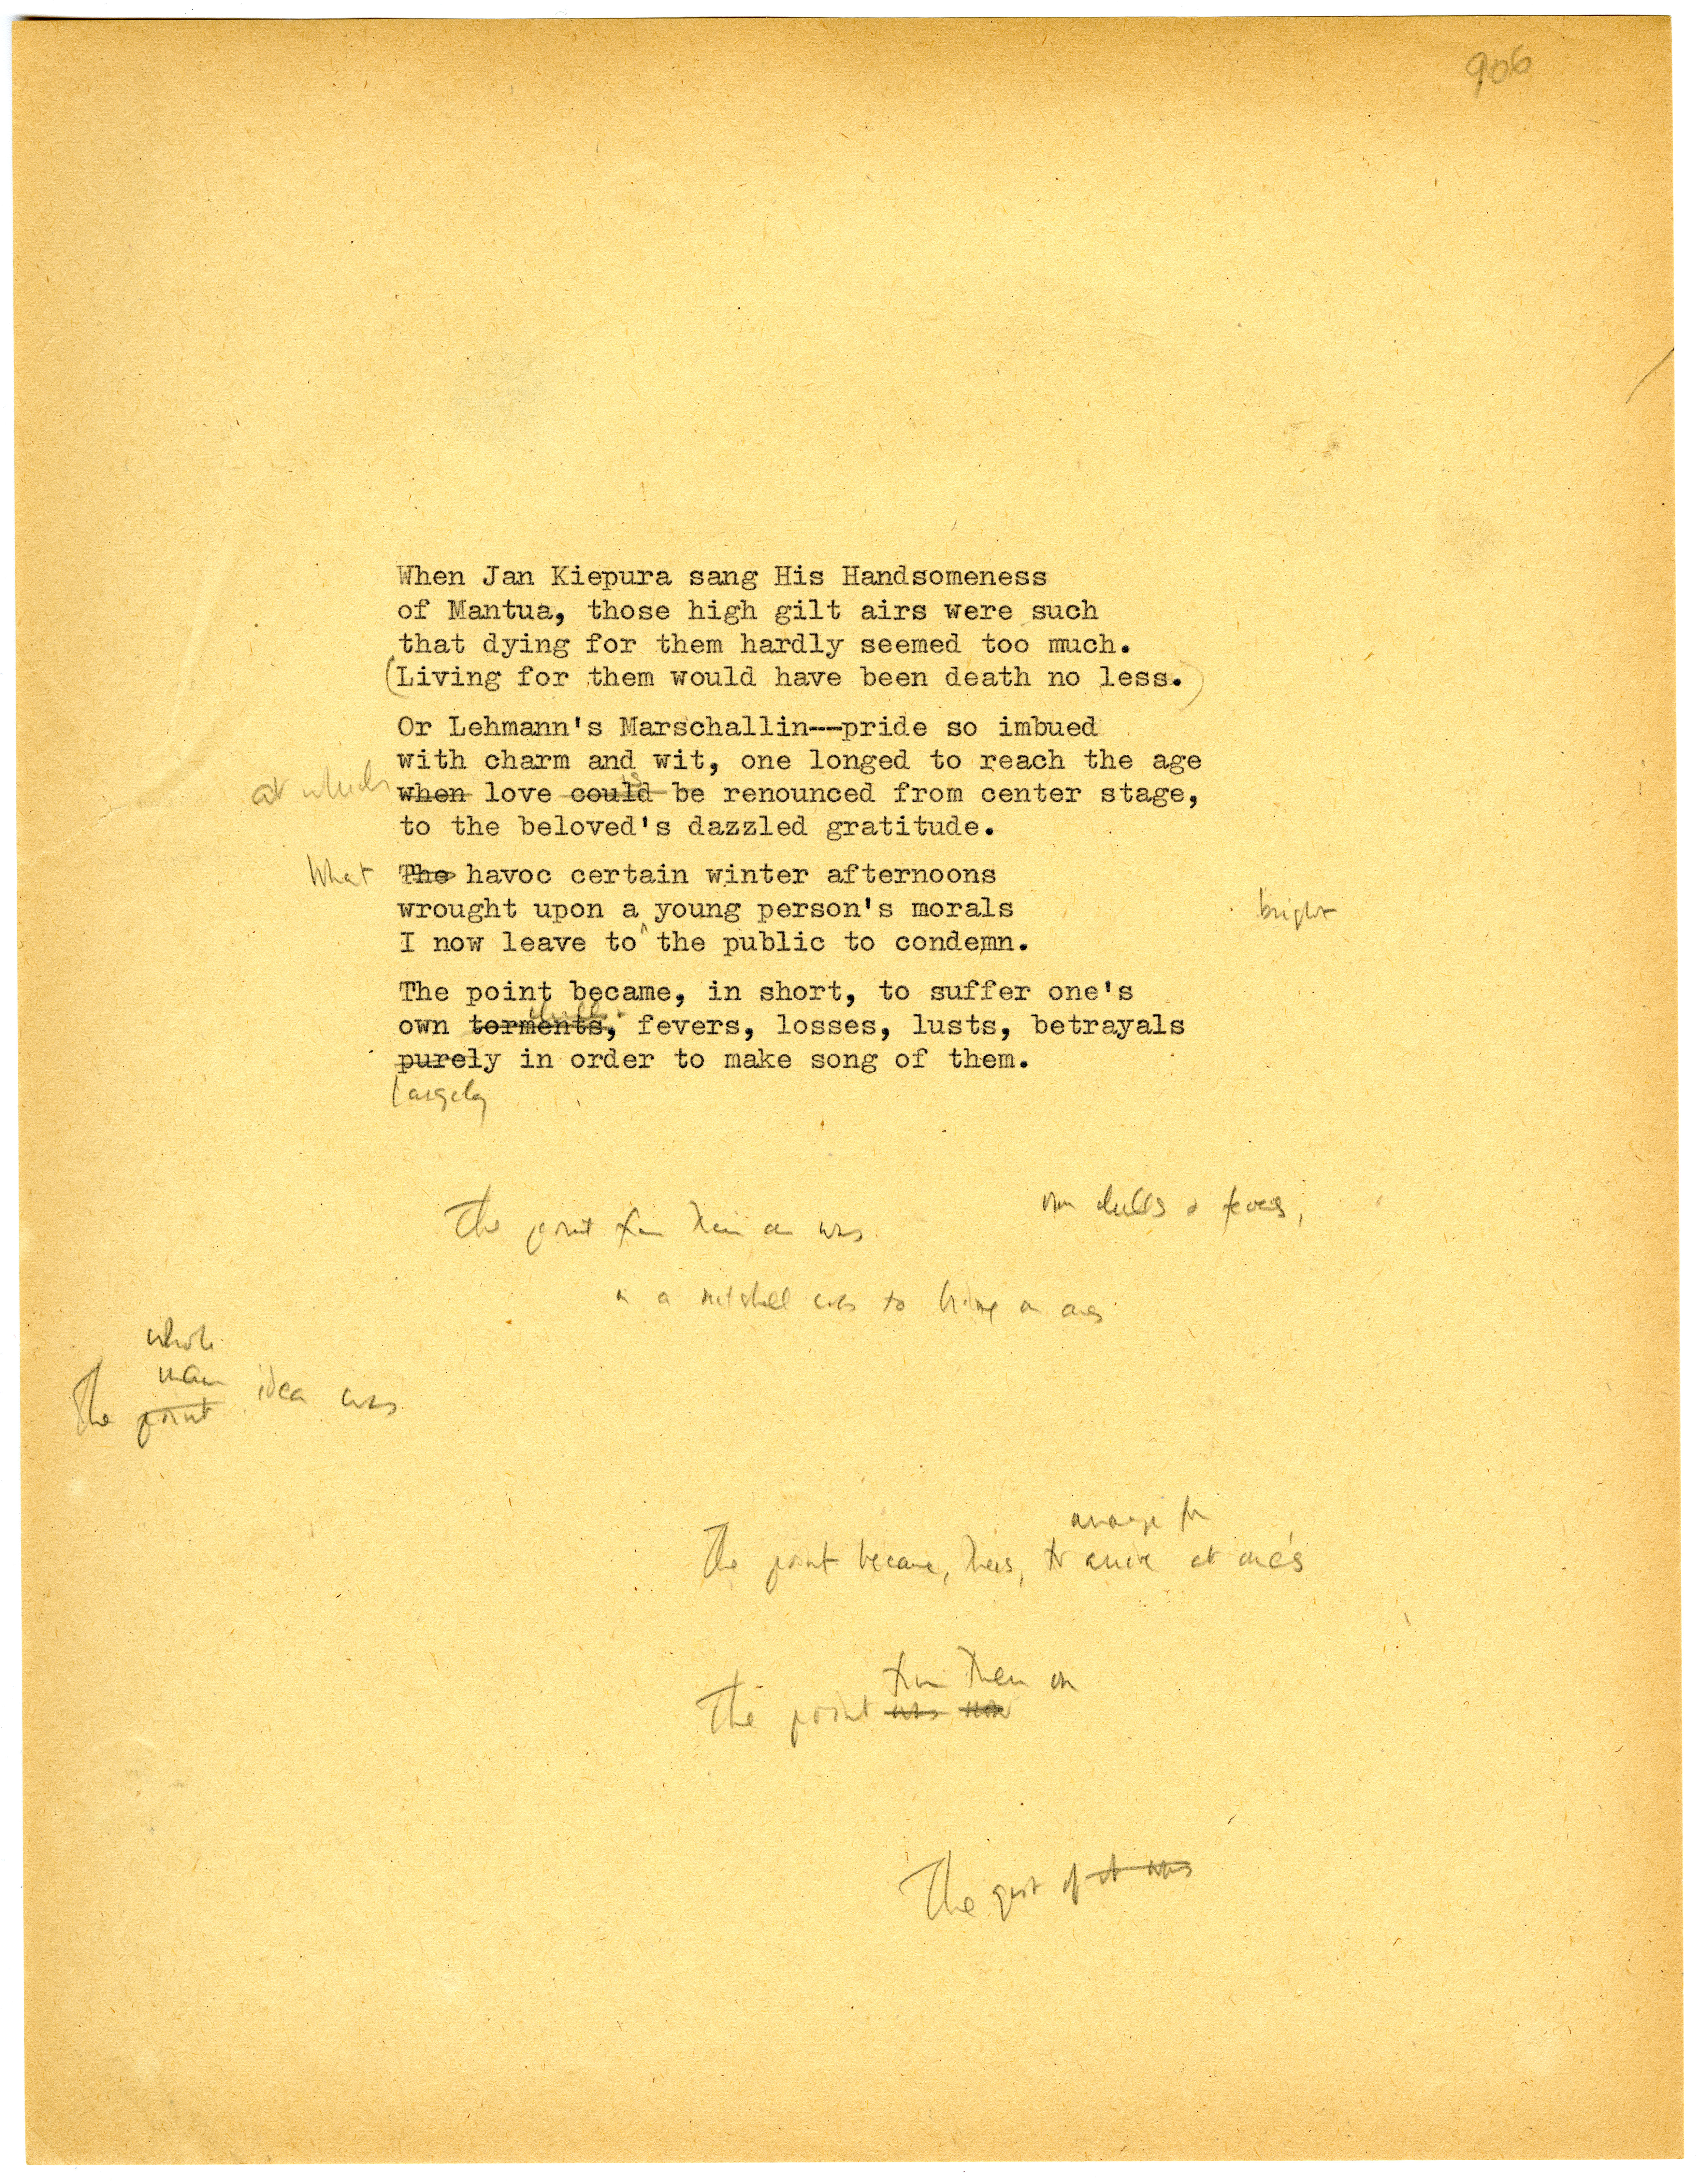 906
When Jan Kiepura sang His Handsomeness
of Mantua, those high gilt airs were such
that dying for them hardly seemed too much.
(Living for them would have been death no less.)
Or Lehmann's Marschallin---pride so imbued
with charm and wit, one longed to reach the age
at which when love could is be renounced from center stage,
to the beloved's dazzled gratitude.
What The havoc certain winter afternoons
wrought upon a young person's morals bright
I now leave to ^ the public to condemn.
The point became, in short, to suffer one's
chills
own torments, fevers, losses, lusts, betrayals
purely in order to make song of them.
largely
own chills & fevers,
The point from then on was
in a nutshell was to bring on one's
whole
main
The point idea was
arrange for
The point became, thus, to arrive at one's
from then on
The point was now
The gist of it was